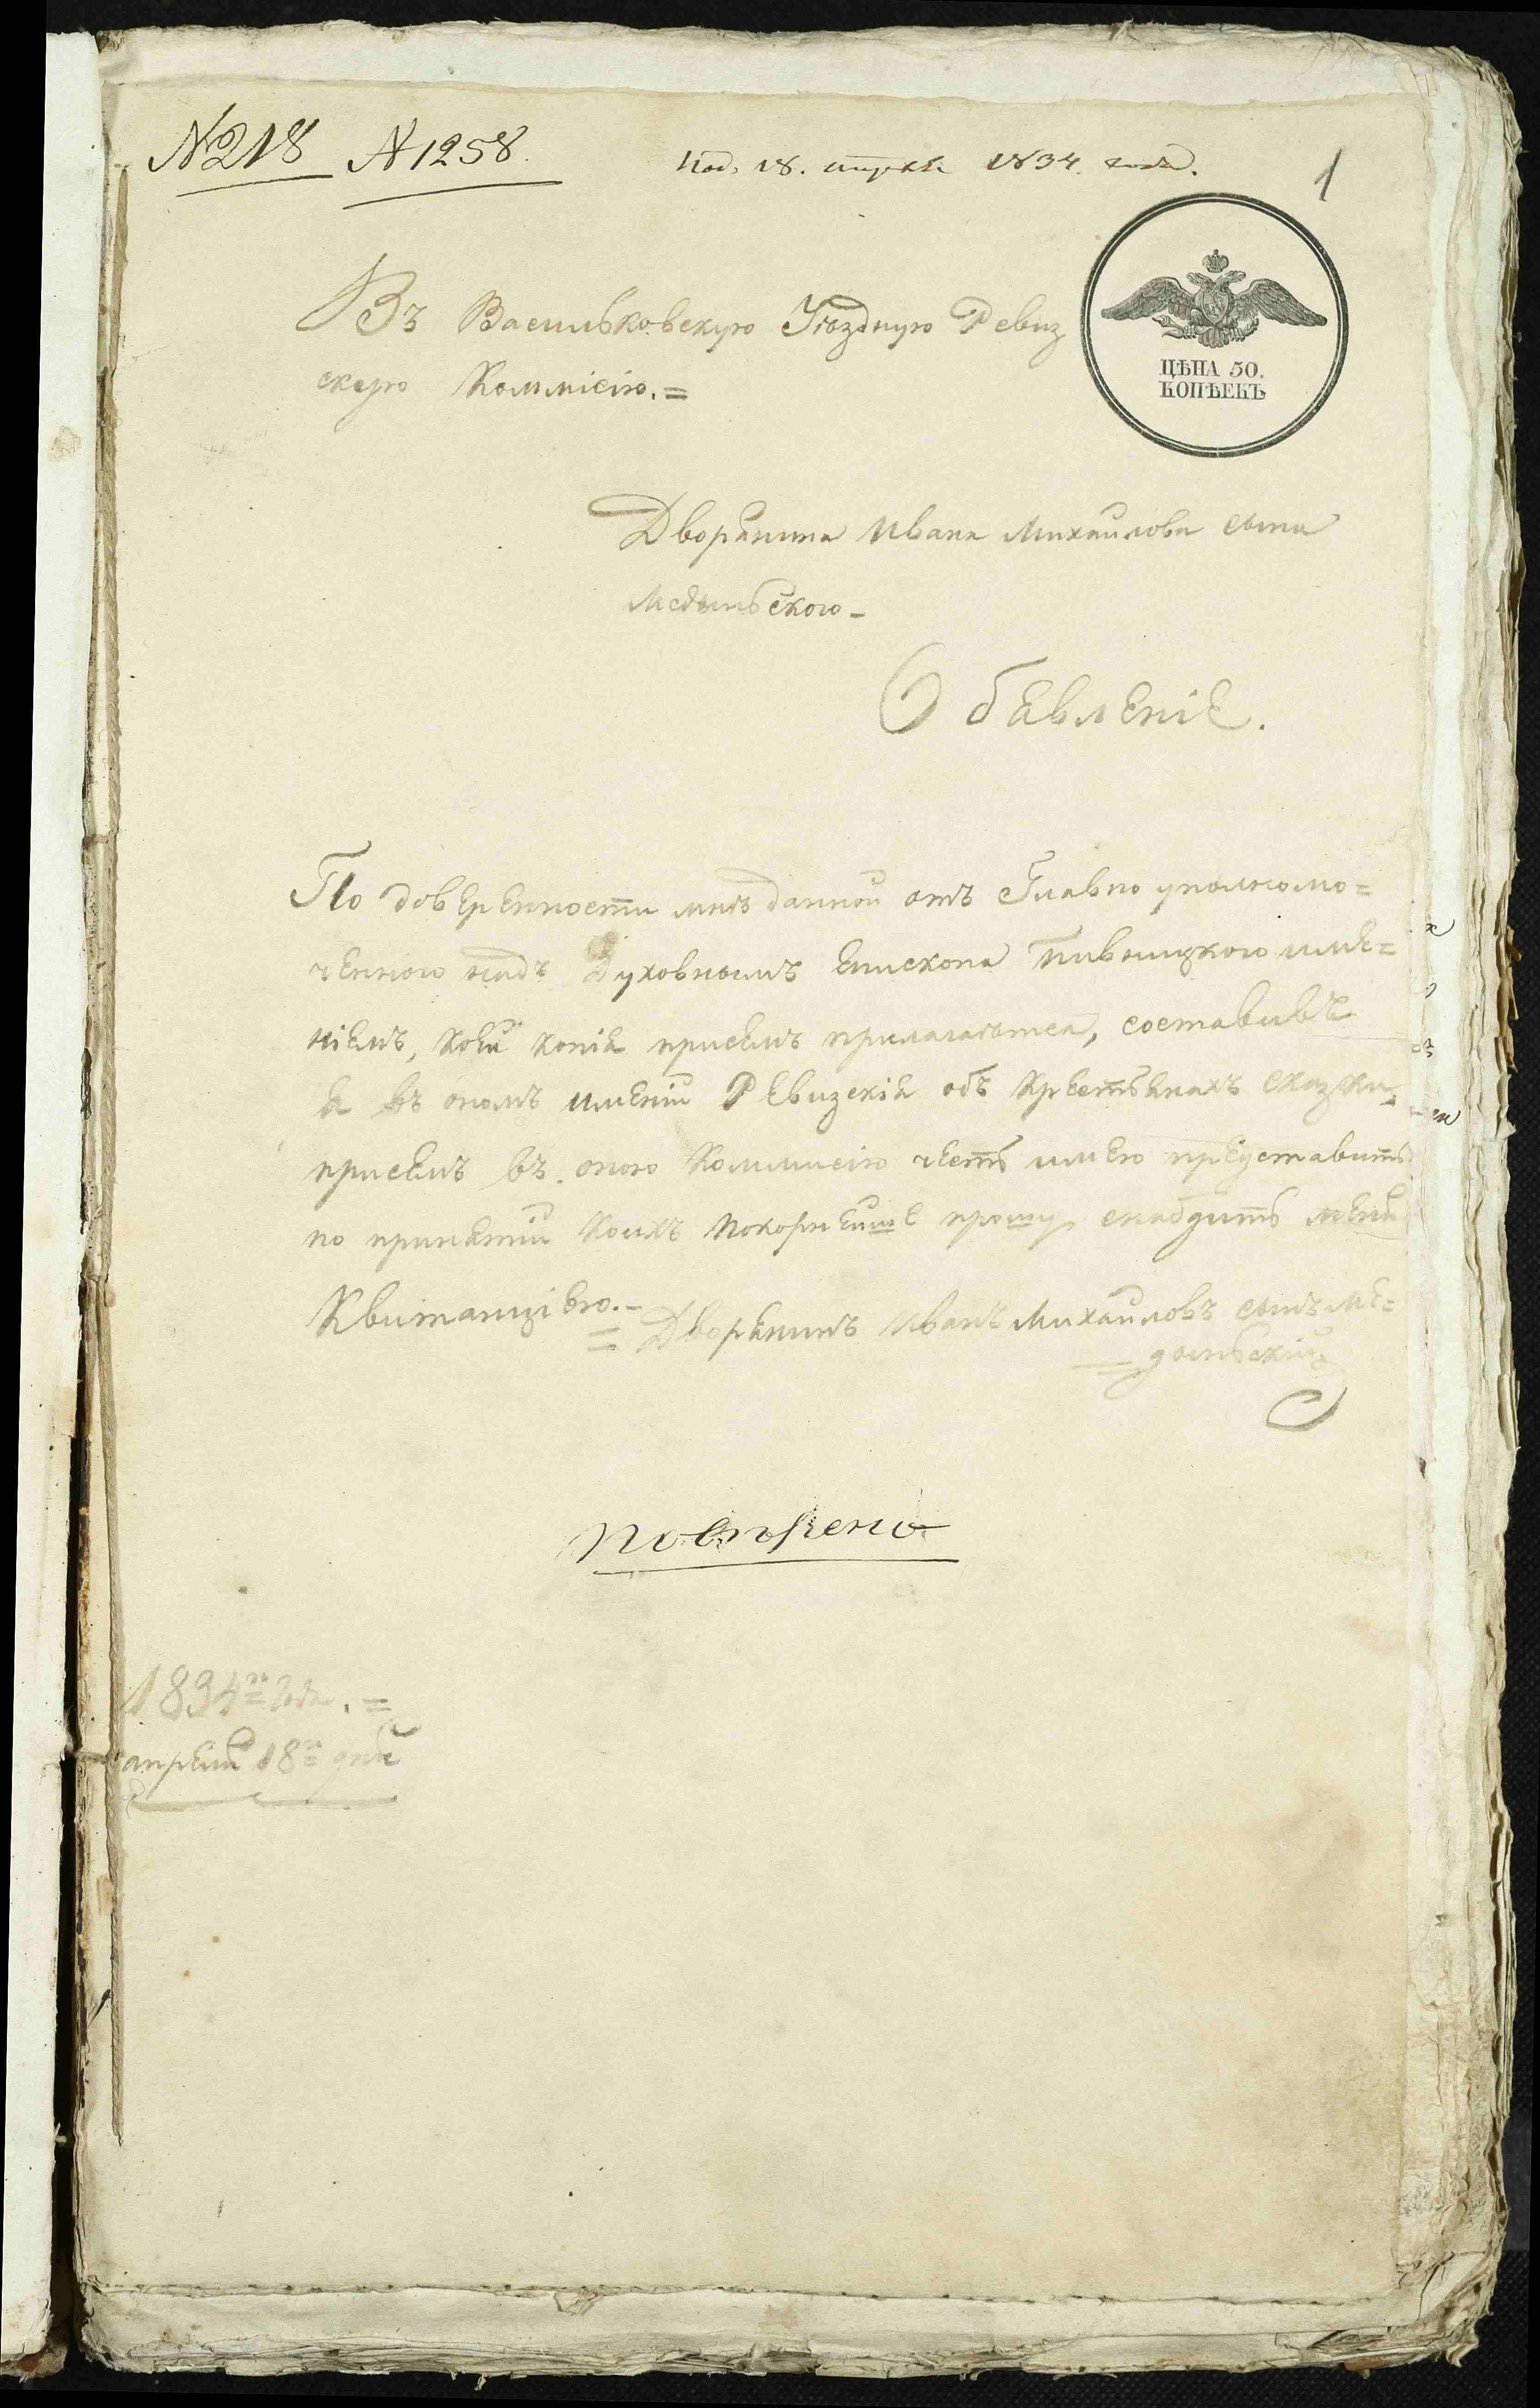 №218 №1258.
Под. 18. апрѣля 1834. года.
1
ЦѢНА 50.
КОПѢЕКЪ
Въ Васильковскую Уѣздную Ревиз
скую Коммісію.=
Дворянина Ивана Михайлова сына
Медыньского-
Обявленіе.
По доверенности мнѣ данной отъ Главно уполномо=
ченного надъ Духовнымъ Епископа Пивницкого име=
ніемъ, коей копія присемъ прилагаѣтся, составивъ
я въ ономъ именіи Ревизскія объ крестьянахъ сказки,
присемъ въ оною Коммисію честь имею представить
по принятіи коихъ покорнейше прошу снабдить меня
Квитанціею.-
= Дворянинъ Иванъ Михайловъ сынъ Ме=
дыньскій
повѣрено
1834го года.=
апреля 18го дня